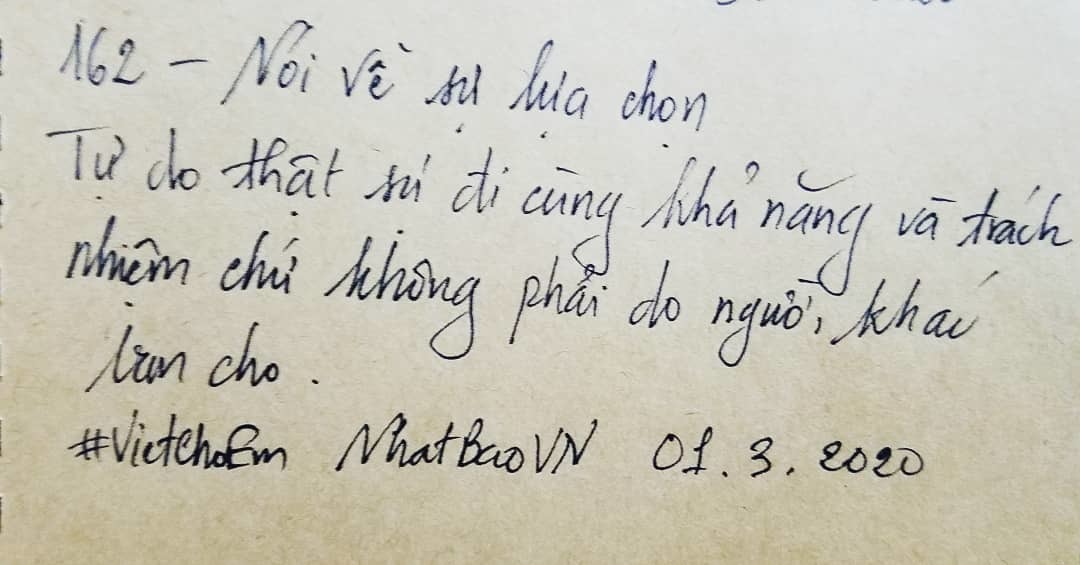 162 - Nói về sự lựa chọn
Tự do thật sự đi cùng khả năng và trách
nhiệm chứ không phải do người khác
ban cho.
#VietChoEm NhatBaoVN 01.3.2020